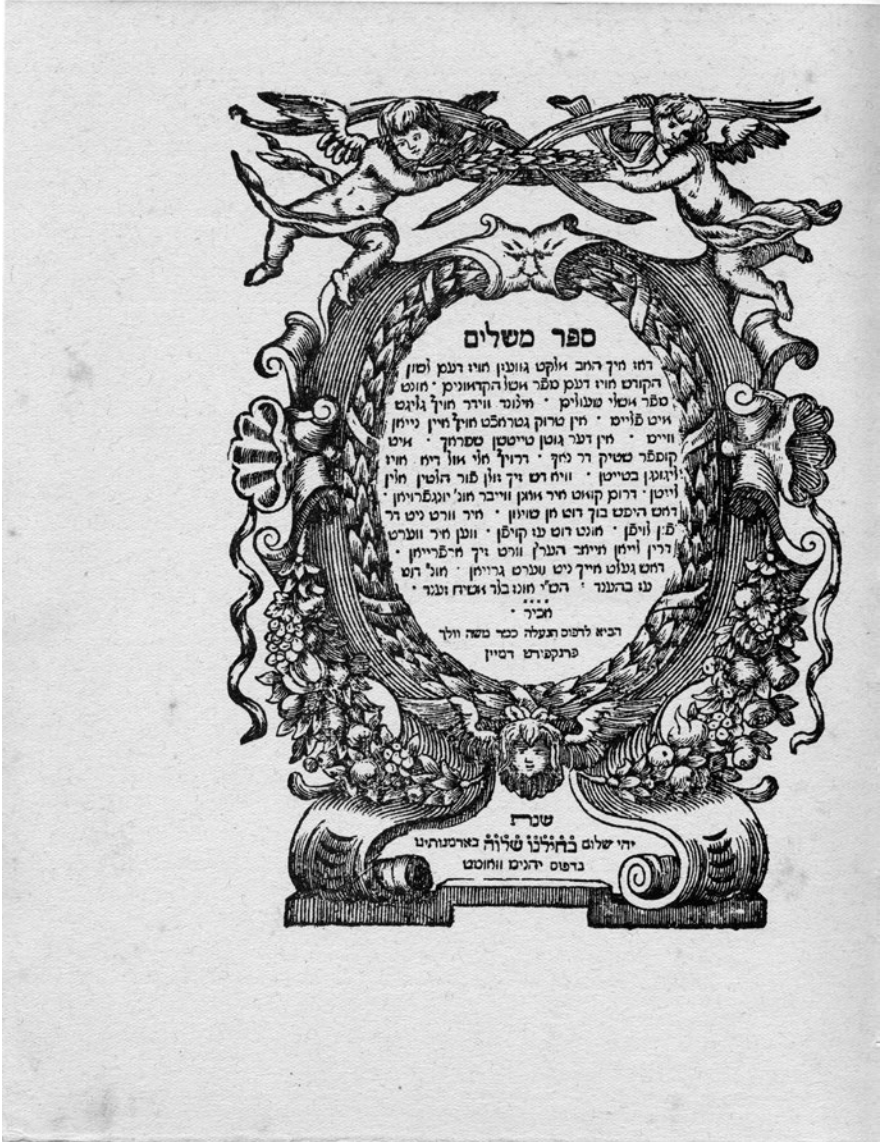 ספר משלים
דאז איך האב גוועזן אויז דעם לשון
הקודש אויז דעם ספר משל הקדמונים · אונט
ספר משלי שועלים · ווידר אויף גליגט
מיט פלייס · אין טרוק גטראכט אויף איין נייאן
ווייס · אין דער גוטן טייטשן שפראך · מיט
קופפר שטיק דר נאך · דרויף אלי משל דיא אויז
ליגונגן בטייטן · וויא דש זיך זולן פור הלטין אלין
לייטן · דרום קומט איר מאנן ווייבר אונ' יונגפרויאן
דאש היפש בוך דוט אן שויאן · איר ווערט ניט דר
פון לויפן · אונט דוט עז קויפן · ווען איר ווערט
דרין לייאן אייאר הערץ ווערט זיך ערפרייאן ·
דאש געלט אייך ניט ווערט גרויאן · אונ' דוט
עז בהענד : הש"י אונז בלד משיח זענד ·
אכיר ·
הביא לדפוס הנעלה כמר משה וולך
פרנקפורט דמיין
שנת
יהי שלום בחילנו שלוה בארמנותינו
בדפוס יהנים וואוסט